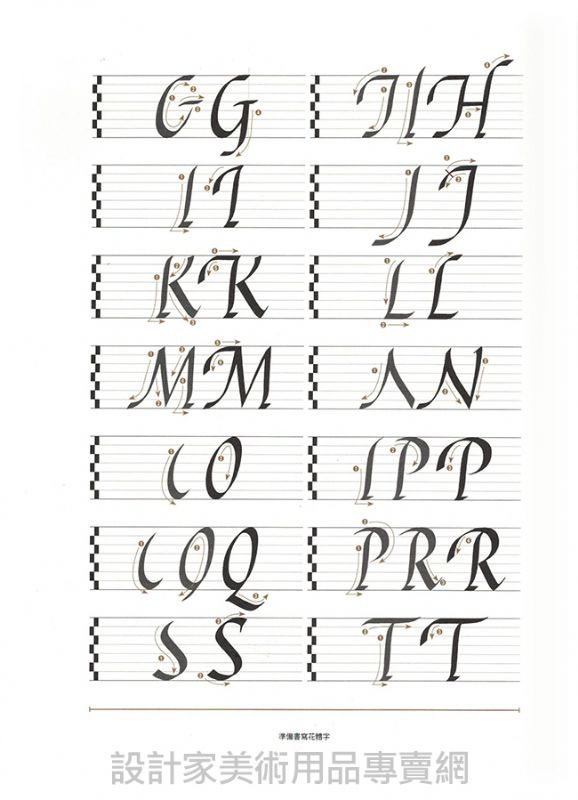 G G I I H
I I J J
K K L L
M M Λ N
C O I P P
C O Q P R R
S S T T
準備書寫花體字
設計家美術用品專賣網